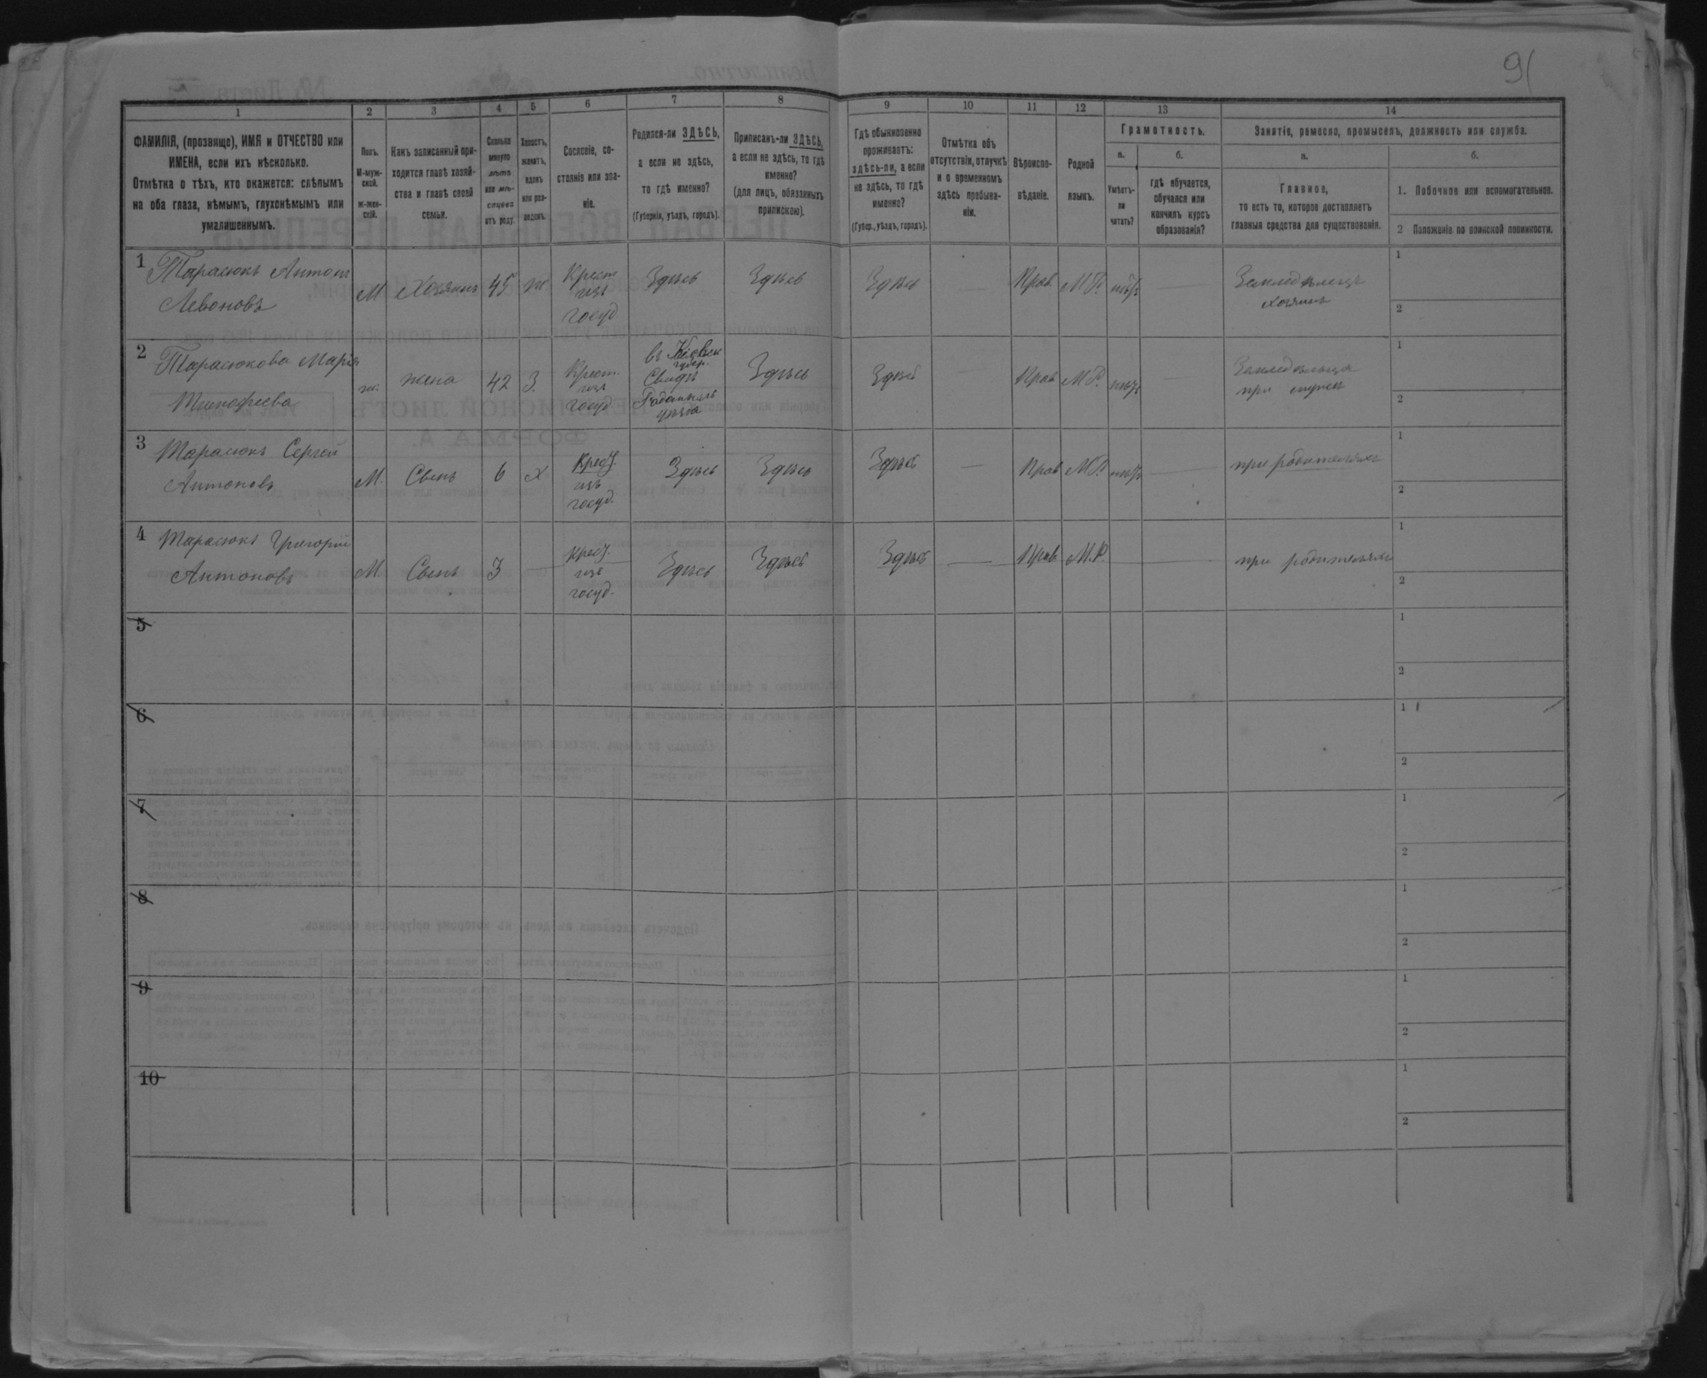 91
1 2 3 4 5 6 7 8 9 10 11 12 13 14
ФАМИЛІЯ, (прозвище), ИМЯ и ОТЧЕСТВО или
ИМЕНА, если ихъ нѣсколько.
Отмѣтка о тѣхъ, кто окажется: слѣпымъ
на оба глаза, нѣмымъ, глухонѣмымъ или
умалишеннымъ.
Полъ.
М-муж-
ской.
ж-жен-
скій.
Какъ записанный при-
ходится главѣ хозяй-
ства и главѣ своей
семьи.
Сколько
минуло
лѣтъ
или мѣ-
сяцевъ
отъ роду.
Холостъ,
женатъ,
вдовъ
или раз-
веденъ.
Сословіе, со-
стояніе или зва-
ніе.
Родился-ли ЗДѢСЬ,
а если не здѣсь,
то гдѣ именно?
(Губернія, уѣздъ, городъ).
Приписанъ-ли ЗДѢСЬ,
а если не здѣсь, то гдѣ
именно?
(для лицъ, обязанныхъ
припискою).
Гдѣ обыкновенно
проживаетъ:
здѣсь-ли, а если
не здѣсь, то гдѣ
именно?
(Губер., уѣздъ, городъ).
Отмѣтка объ
отсутствіи, отлучкѣ
и о временномъ
здѣсь пребыва-
ніи.
Вѣроиспо-
вѣданіе.
Родной
языкъ.
Грамотность.
а.
Умѣетъ-
ли
читать?
б.
гдѣ обучается,
обучался или
кончилъ курсъ
образованія?
Занятіе, ремесло, промыселъ, должность или служба.
а.
Главное,
то есть то, которое доставляетъ
главныя средства для существованія.
б.
1. Побочное или вспомогательное.
2 Положеніе по воинской повинности.
1 Тарасюкъ Антонъ
Левоновъ
М Хозяинъ 45 ж Крест изъ госуд Здѣсь Здѣсь Здѣсь — Прав М.Р. нѣтъ —
Земледѣлецъ
хозяинъ
1
2
2 Тарасюкова Марія
Тимофеева
ж. жена 42 З. Крест изъ госуд
въ Кіевск
губ.
уѣзда
Здѣсь Здѣсь — Прав М.Р. нѣтъ —
при мужѣ
1
2
3 Тарасюкъ Сергей
Антоновъ
М. Сынъ 6 х Крест. изъ госуд. Здѣсь Здѣсь Здѣсь — Прав М.Р. нѣтъ — при родителяхъ
1
2
4 Тарасюкъ Григорій
Антоновъ
М Сынъ 3 — Крест. изъ госуд. Здѣсь Здѣсь Здѣсь — Прав М.Р. — при родителяхъ
1
2
5
1
2
6
1
2
7
1
2
8
1
2
9
1
2
10
1
2